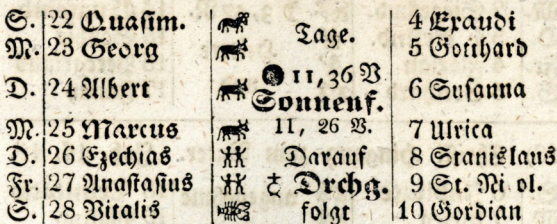 S. 22 Quasim. Tage. 4 Exaudi
M. 23 Georg 5 Gotthard
D. 24 Albert 11, 36 V. Sonnenf. 6 Susanna
M. 25 Marcus 11, 26 V. 7 Ulrica
D. 26 Ezechias Darauf 8 Stanislaus
Fr. 27 Anastasius ☿ Drchg. 9 St. Ni ol.
S. 28 Vitalis folgt 10 Gordian